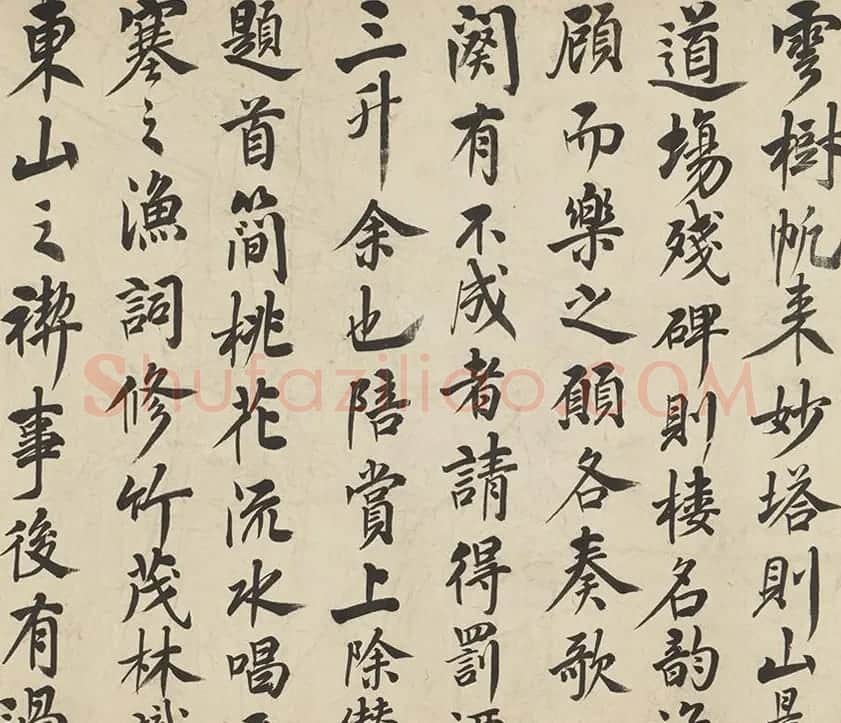 雲樹帆来妙塔則山
道場殘碑則棲名韵
顧而樂之願各奏歌
闋有不成者請得罰
三升余也陪賞上除
題首簡桃花流水唱
塞之漁詞修竹茂林
東山之禊事後有
Shufaziliao.COM